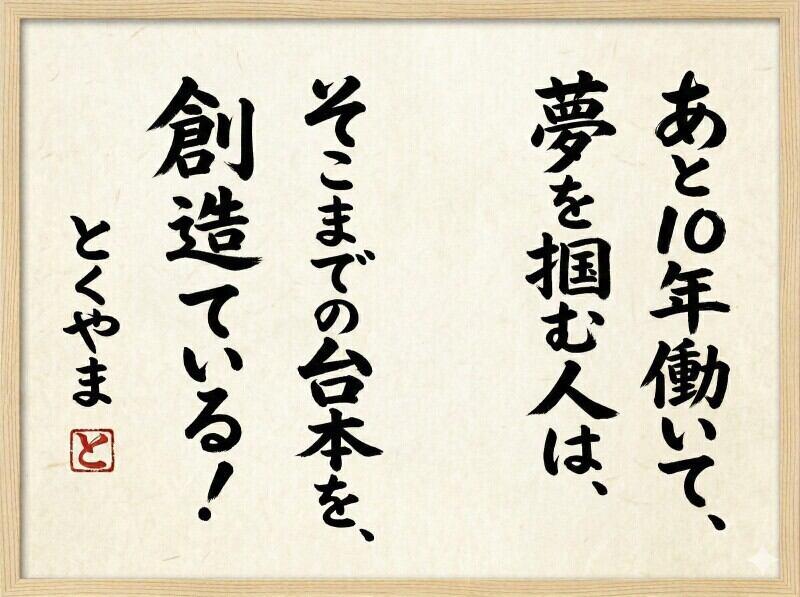 あと10年働いて、
夢を掴む人は、
そこまでの台本を、
創造ている！
とくやま
と